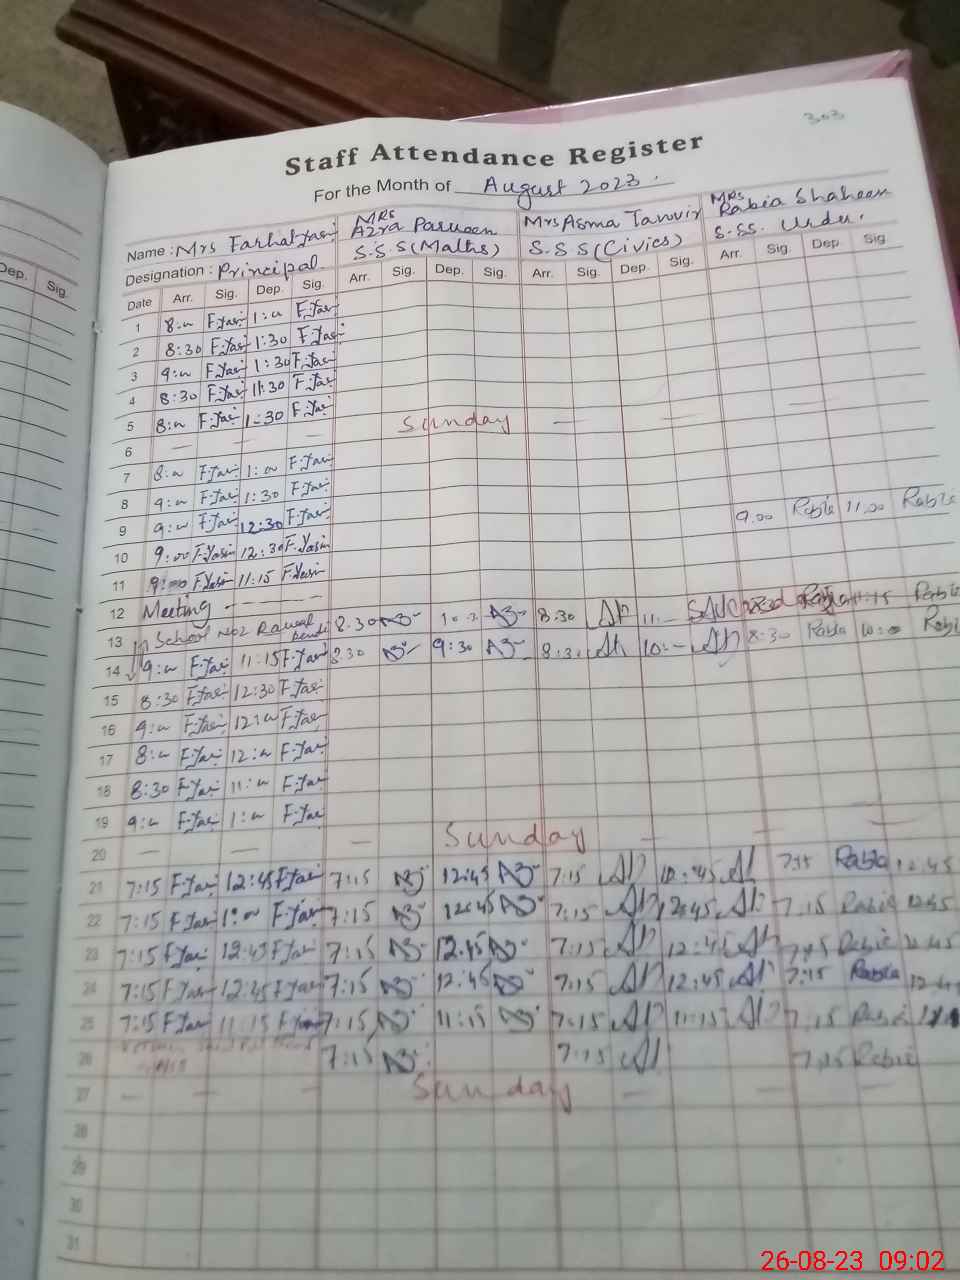 303
Staff Attendance Register
For the Month of August 2023.
Name: Mrs Farhat Yasi MRS Azra Parveen Mrs Asma Tanvir MRS Rabia Shaheen
Designation: Principal S.S.S (Maths) S.S S (Civics) S.SS. Urdu.
Dep. Sig.
Date Arr. Sig. Dep. Sig. Arr. Sig. Dep. Sig. Arr. Sig. Dep. Sig. Arr. Sig. Dep. Sig.
1 8:00 F.Yasi 1:00 F.Yasi
2 8:30 F.Yasi 1:30 F.Yasi
3 9:00 F.Yasi 1:30 F.Yasi
4 8:30 F.Yasi 11:30 F.Yasi
5 8:00 F.Yasi 1:30 F.Yasi
6 — — — Sunday — —
7 8:00 F.Yasi 1:00 F.Yasi
8 9:00 F.Yasi 1:30 F.Yasi
9 9:00 F.Yasi 12:30 F.Yasi 9.00 Rabia 11.00 Rabia
10 9:00 F.Yasin 12:30 F.Yasin
11 9:00 F.Yasin 11:15 F.Yasin
12 Meeting
13 School No2 8.30 8:30 11:- 11:15 Rabia
14 9:00 F.Yasi 11:15 F.Yasi 8:30 9:30 8:30 10:- 8:30 Rabia 10:00 Rabi
15 8:30 F.Yasi 12:30 F.Yasi
16 9:00 F.Yasi 12:00 F.Yasi
17 8:00 F.Yasi 12:00 F.Yasi
18 8:30 F.Yasi 11:00 F.Yasi
19 9:00 F.Yasi 1:00 F.Yasi
20 — — — Sunday — — —
21 7:15 F.Yasi 12:45 F.Yasi 7:15 12:45 7:15 7:15 Rabia 12:45
22 7:15 F.Yasi 1:00 F.Yasi 7:15 12:45 7:15 12:45 7.15 Rabia 12:45
23 7:15 F.Yasi 12:45 F.Yasi 7:15 12.45 7:15 12:45 7:15 Rabia 12:45
24 7:15 F.Yasi 12:45 F.Yasi 7:15 12:45 7:15 12:45 7:15 Rabia
25 7:15 F.Yasi 11:15 F.Yasi 7:15 11:15 7:15 11:15 7:15 Rabia
26 7:15 7:15 7:15 Rabia
27 — — — Sunday — — —
28
29
30
31
26-08-23 09:02